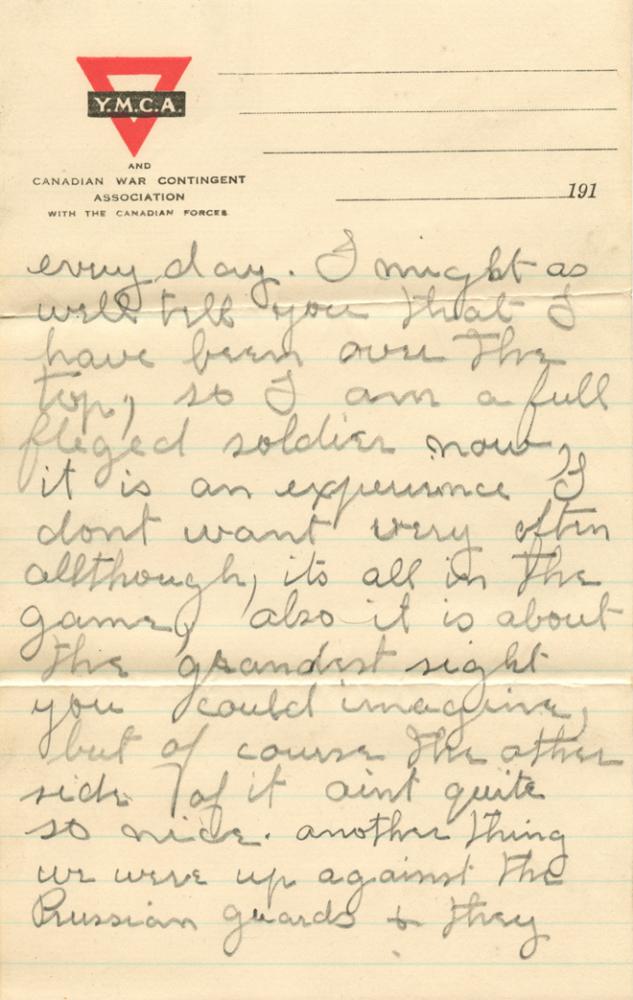 Y.M.C.A.
AND
CANADIAN WAR CONTINGENT
ASSOCIATION
WITH THE CANADIAN FORCES
191
every day. I might as
well tell you that I
have been over the
top, so I am a full
fleged soldier now,
it is an experience I
dont want very often
allthough, its all in the
game, also it is about
the grandest sight
you could imagine,
but of course the other
side of it aint quite
so nice. another thing
we were up against the
Prussian guards & they